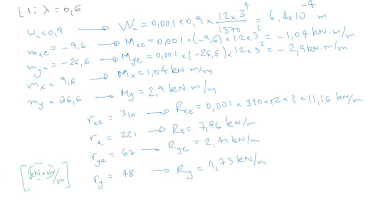 L1: λ = 0,6
Wc = 0,9 → Wc = 0,001 × 0,9 × 12×3⁴/1370 = 6,4×10⁻⁴ m
mxe = -9,6 → Mxe = 0,001 × (-9,6) × 12×3² = -1,04 kN·m/m
mye = -26,6 → Mye = 0,001 × (-26,6) × 12×3² = -2,9 kN·m/m
mx = 9,6 → Mx = 1,04 kN m/m
my = 26,6 → My = 2,9 kN·m/m
rxe = 310 → Rxe = 0,001 × 310 × 12 × 3 = 11,16 kN/m
rx = 221 → Rx = 7,96 kN/m
rye = 67 → Rye = 2,41 kN/m
ry = 48 → Ry = 1,73 kN/m
[kN·m/m]